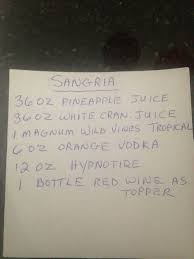 SANGRIA
36 OZ PINEAPPLE JUICE
36 OZ WHITE CRAN. JUICE
1 MAGNUM WILD VINES TROPICAL
6 OZ ORANGE VODKA
12 OZ HYPNOTIRE
1 BOTTLE RED WINE AS
TOPPER